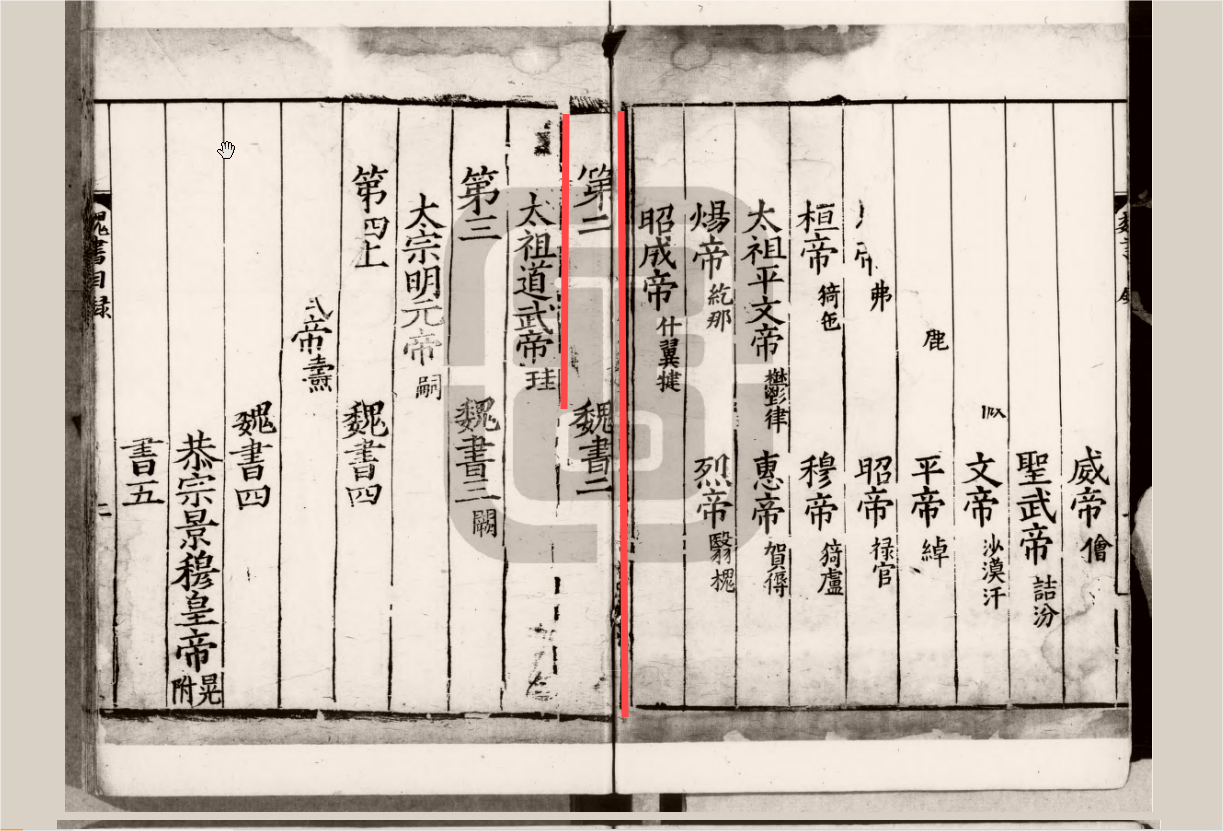 威帝 儈
聖武帝 詰汾
文帝 沙漠汗
鹿
平帝 綽
帝 弗
昭帝 祿官
桓帝 猗㐌
穆帝 猗盧
太祖平文帝 鬱律
惠帝 賀傉
煬帝 紇那
烈帝 翳槐
昭成帝 什翼犍
第二 魏書二
太祖道武帝 珪
第三 魏書三 闕
太宗明元帝 嗣
第四上 魏書四
武帝 燾
魏書四
恭宗景穆皇帝 晃附
書五
魏書目録
二